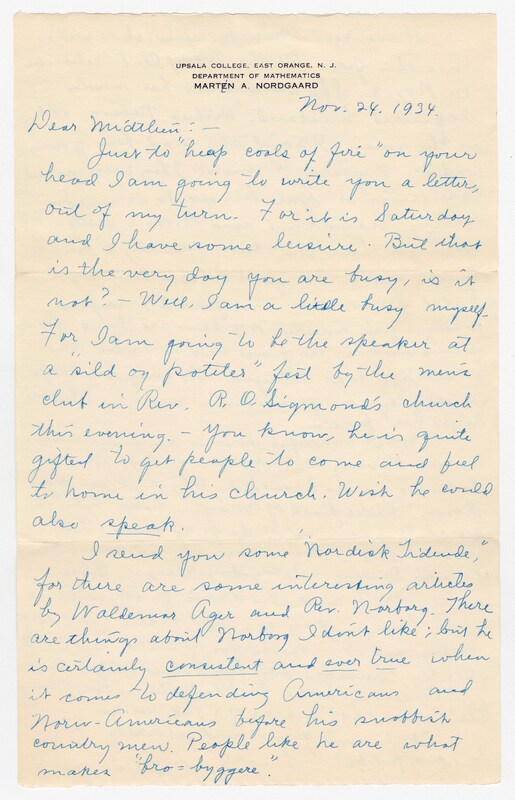 UPSALA COLLEGE, EAST ORANGE, N. J.
DEPARTMENT OF MATHEMATICS
MARTEN A. NORDGAARD
Nov. 24, 1934.
Dear Midtlien: —
Just to "heap coals of fire" on your
head I am going to write you a letter,
out of my turn. For it is Saturday
and I have some leisure. But that
is the very day you are busy, is it
not? — Well, I am a little busy myself.
For I am going to be the speaker at
a "sild og poteter" fest by the men's
club in Rev. R. O. Sigmond's church
this evening. — You know, he is quite
gifted to get people to come and feel
to home in his church. Wish he could
also speak.
I send you some "Nordisk Tidende,"
for there are some interesting articles
by Waldemar Ager and Rev. Norborg. There
are things about Norborg I don't like; but he
is certainly consistent and ever true when
it comes to defending Americans and
Norw-Americans before his snobbish
country men. People like he are what
makes "bro=byggere".